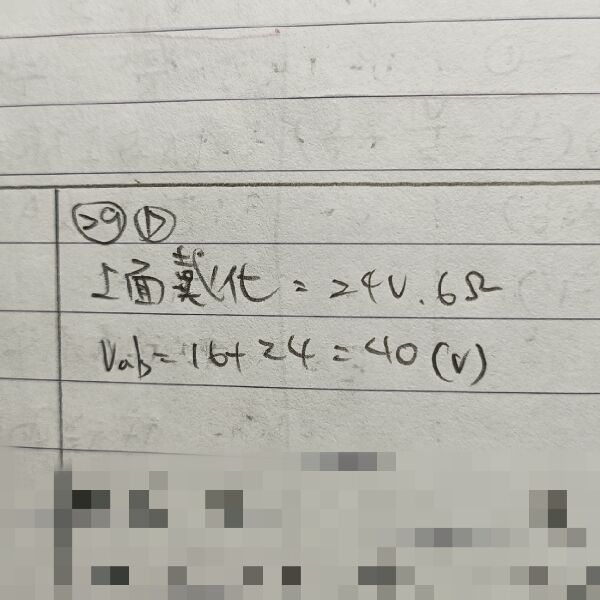 29 D
上面戴化 = 24V.6Ω
Vab = 16+24 = 40 (V)